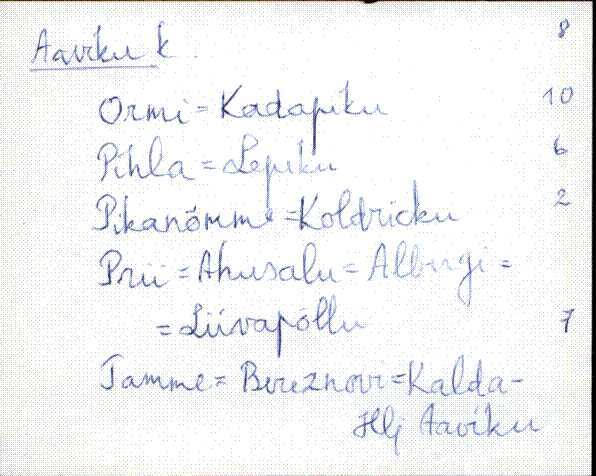 Aaviku k 8
Ormi = Kadapiku 10
Pihla = Lepiku 6
Pikanõmme = Koldricku 2
Prii = Ahusalu = Albergi =
= Liivapõllu 7
Tamme = Bereznovi = Kalda-
Hlj Aaviku